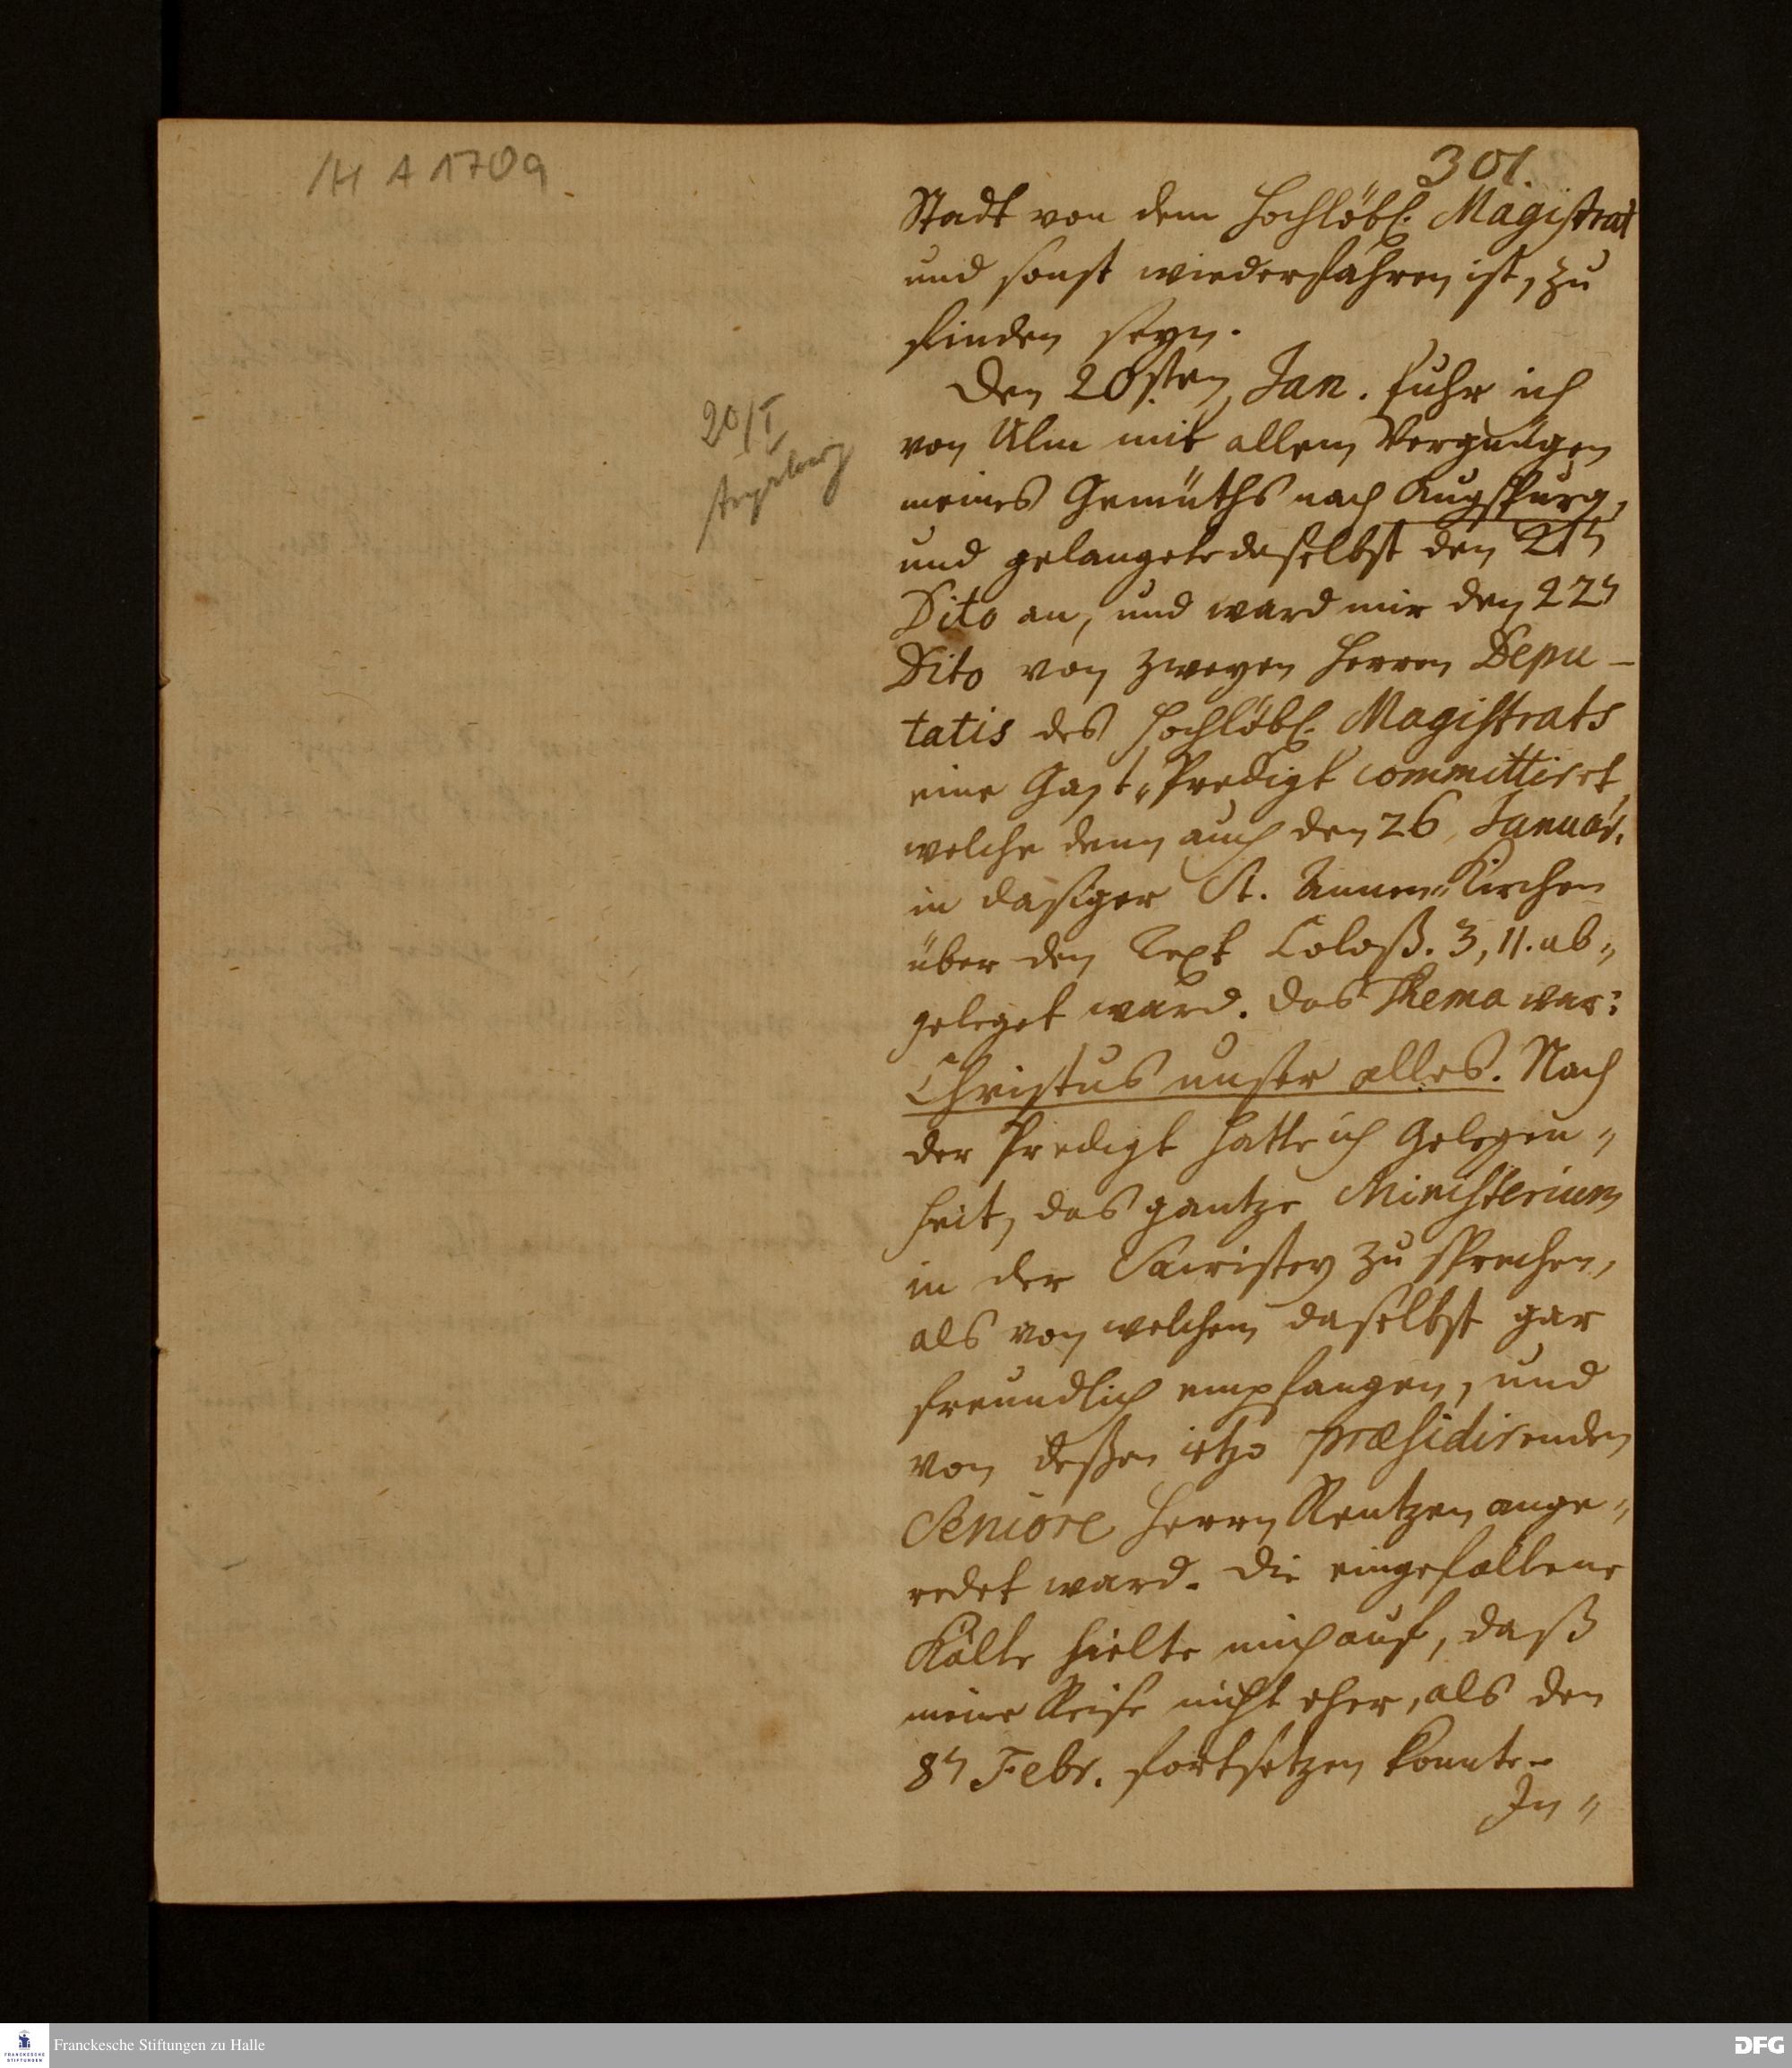 1H A 1709
301.
Stadt von dem Hochlöbl. Magistrat
und sonst wiederfahren ist, zu
finden seyn.
Den 20sten Jan. fuhr ich
von Ulm mit allem Vergnügen
20/I
Augsburg
meines Gemüths nach Augspurg,
und gelangete daselbst den 21n
Dito an, und ward mir den 22n
Dito von zweyen Herren Depu-
tatis des Hochlöbl. Magistrats
eine Gast-Predigt committiret,
welche denn auch den 26 Januar.
in dasiger St. Annen-Kirchen
über den Text Coloß. 3, 11. ab-
geleget ward. Das Thema war:
Christus unser alles. Nach
der Predigt hatte ich Gelegen-
heit, das gantze Ministerium
in der Sacristey zu sprechen,
als von welchem daselbst gar
freundlich empfangen, und
von deßen itzo præsidirenden
Seniore Herrn Rentzen ange-
redet ward. Die eingefallene
Kälte hielte mich auf, daß
meine Reise nicht eher, als den
8n Febr. fortsetzen konnte.
In-
Franckesche Stiftungen zu Halle
FRANCKESCHE
STIFTUNGEN
DFG